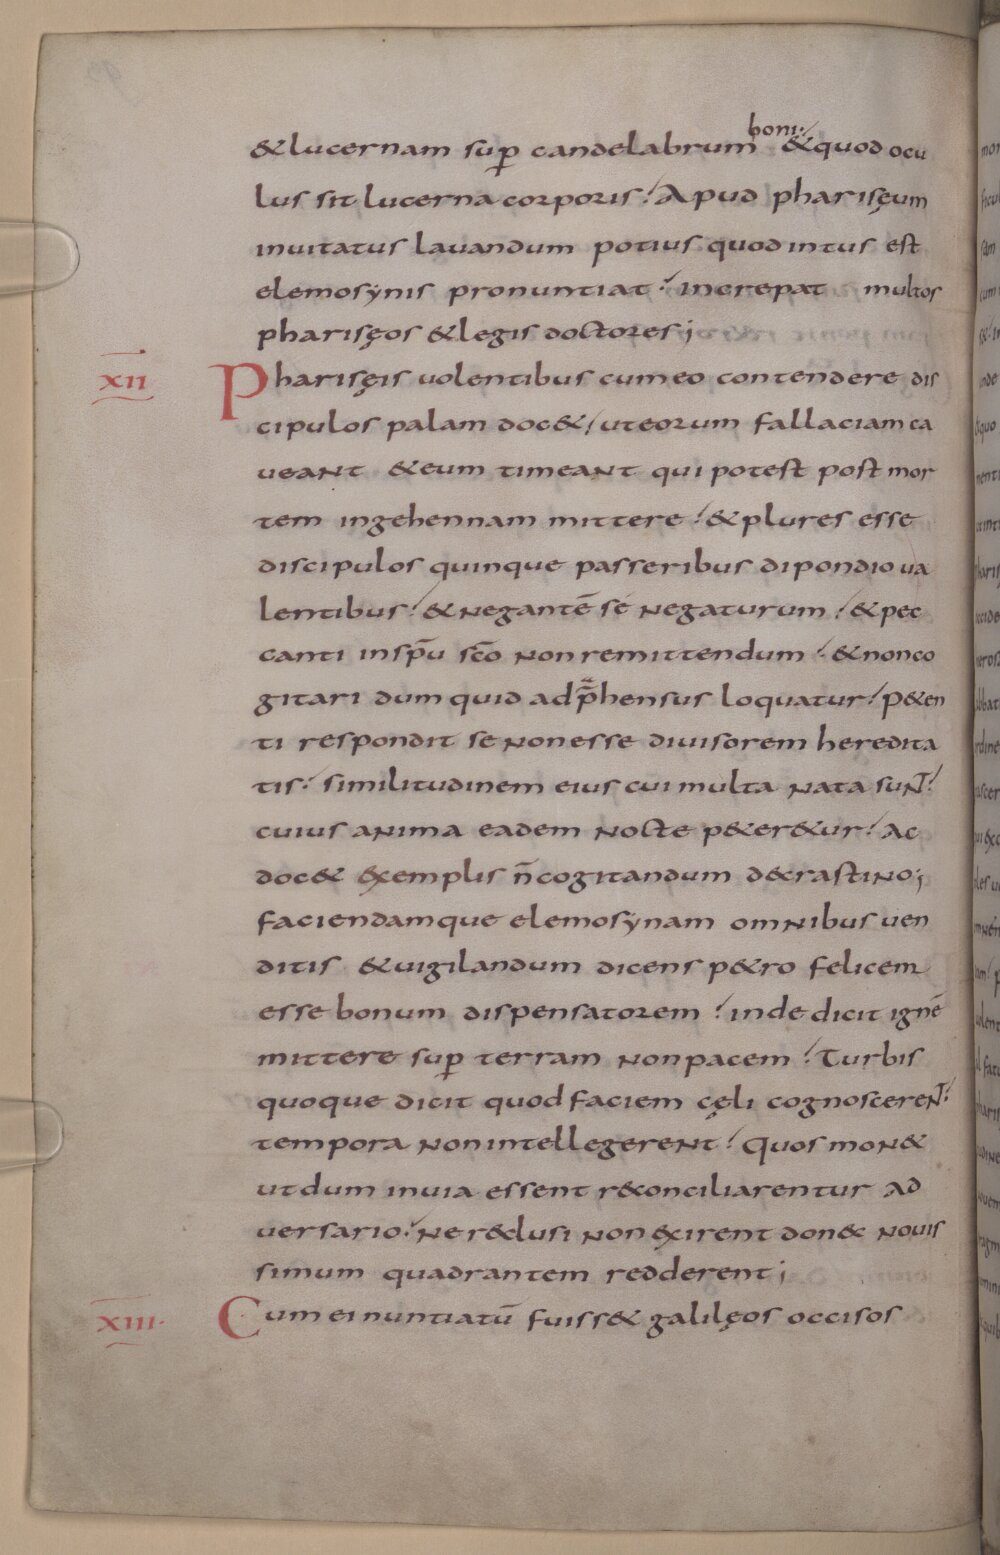 boni·
& lucernam sup̱ candelabrum & quod ocu
lus sit lucerna corporis! Apud pharisęum
inuitatus lauandum potius quod intus est
elemosynis pronuntiat! increpat multos
pharisęos & legis doctores;
XII Pharisęis uolentibus cum eo contendere dis
cipulos palam doc&/ ut eorum fallaciam ca
ueant & eum timeant qui potest post mor
tem in gehennam mittere! & plures esse
discipulos quinque passeribus dipondio ua
lentibus! & negantē se negaturum! & pec
canti in sp̄u sc̄o non remittendum! & non co
gitari dum quid adp̄hensus loquatur! P&en
ti respondit se non esse diuisorem heredita
tis! similitudinem eius cui multa nata sunt!
cuius anima eadem nocte p&er&ur! ac
doc& exemplis n̄ cogitandum de crastino;
faciendamque elemosynam omnibus uen
ditis & uigilandum dicens p&ro felicem
esse bonum dispensatorem! inde dicit ignē
mittere sup̱ terram non pacem! Turbis
quoque dicit quod faciem cęli cognoscerent!
tempora non intellegerent! Quos mon&
ut dum in uia essent r&conciliarentur ad
uersario! ne r&clusi non exirent don&c nouis
simum quadrantem redderent;
XIII· Cum ei nuntiatū fuiss& galilęos occisos